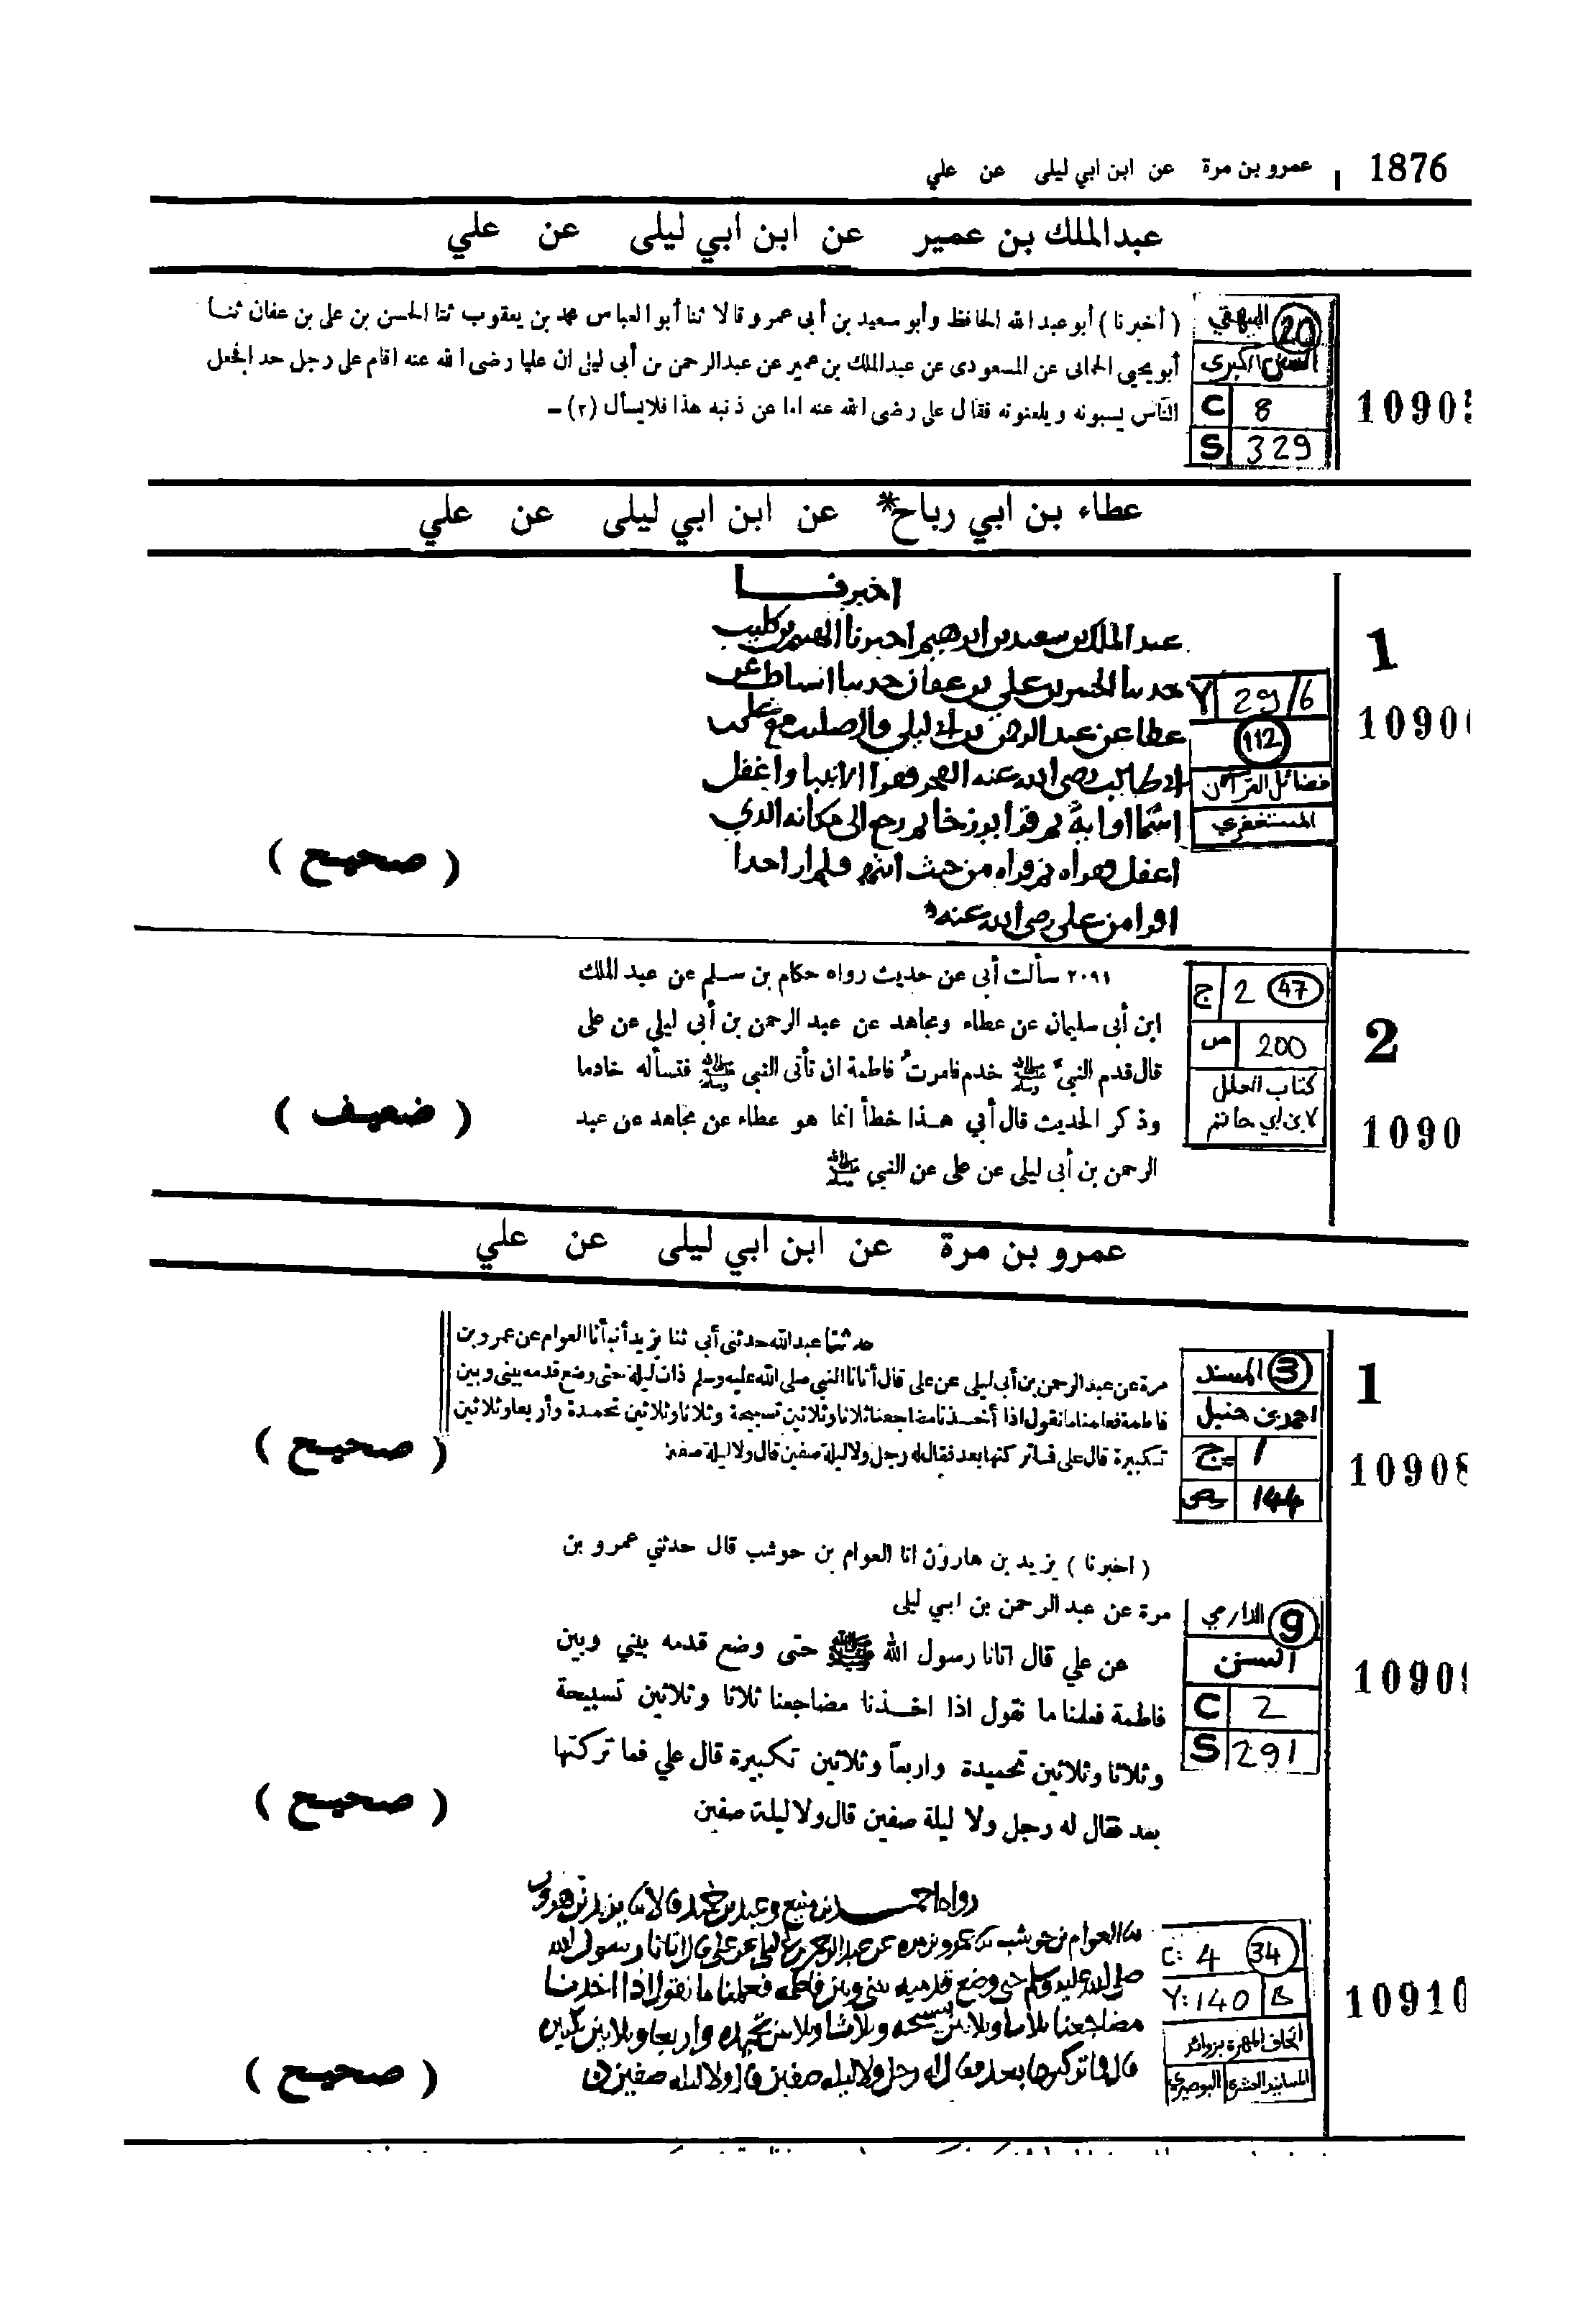 1876 عمرو بن مرة عن ابن ابي ليلى عن علي
عبدالملك بن عمير عن ابن ابي ليلى عن علي
( أخبرنا ) أبو عبد الله الحافظ وأبو سعيد بن أبي عمرو قالا ثنا أبو العباس محمد بن يعقوب ثنا الحسن بن علي بن عفان ثنا
أبو يحيى الحماني عن المسعودي عن عبدالملك بن عمير عن عبدالرحمن بن أبي ليلى ان عليا رضى الله عنه اقام على رجل حد الجعل
الناس يسبونه ويلعنونه فقال على رضى الله عنه اما عن ذنبه هذا فلا يسأل (٢) –
20 البيهقي
السنن الكبرى
C 8
S 329
1090
عطاء بن ابي رباح* عن ابن ابي ليلى عن علي
اخبرنا
عبد الملك بن سعيد بن ابرهيم اخبرنا الهيثم بن كليب
حدثنا الحسن بن علي بن عفان حدثنا اسباط عن
عطا عن عبد الرحمن بن ابي ليلى قال صليت مع علي بن
ابي طالب رضي الله عنه الفجر فقرا الانبيا واغفل
ثم رجع الى مكانه الذي
اغفل فقراه ثم قراه من حيث انتهى فلم ار احدا
اقرا من علي رضي الله عنه
1
Y 29/6
112
فضائل القرآن
المستغفري
1090
( صحيح )
٢٠٩١ سألت أبى عن حديث رواه حكام بن سلم عن عبد الملك
ابن أبى سليمان عن عطاء ومجاهد عن عبد الرحمن بن أبي ليلي عن على
قال قدم النبي ﷺ خدم فامرت فاطمة ان تأتى النبي ﷺ فتسأله خادما
وذكر الحديث قال أبي هذا خطأ انما هو عطاء عن مجاهد عن عبد
الرحمن بن أبى ليلى عن على عن النبي ﷺ
2
ج 2 47
ص 200
كتاب العلل
لابن ابي حاتم
1090
( ضعيف )
عمرو بن مرة عن ابن ابي ليلى عن علي
حدثنا عبدالله حدثنى أبي ثنا يزيد أنبأنا العوام عن عمرو بن
مرة عن عبدالرحمن بن أبى ليلى عن على قال أتانا النبي صلى الله عليه وسلم ذات ليلة حتى وضع قدمه بينى وبين
فاطمة فعلمنا ما نقول اذا أخذنا مضاجعنا ثلاثا وثلاثين تسبيحة وثلاثا وثلاثين تحمدة وأربعا وثلاثين
تكبيرة قال على فما تركتها بعد فقال له رجل ولا ليلة صفين قال ولا ليلة صفين
1
3 المسند
احمد بن حنبل
ج 1
ص 144
10908
( صحيح )
( اخبرنا ) يزيد بن هارون انا العوام بن حوشب قال حدثني عمرو بن
مرة عن عبد الرحمن بن ابي ليلى
عن علي قال اتانا رسول الله ﷺ حتى وضع قدمه بيني وبين
فاطمة فعلمنا ما نقول اذا اخذنا مضاجعنا ثلاثا وثلاثين تسبيحة
وثلاثا وثلاثين تحميدة واربعاً وثلاثين تكبيرة قال علي فما تركتها
بعد فقال له رجل ولا ليلة صفين قال ولا ليلة صفين
9 الدارمي
السنن
C 2
S 291
1090
( صحيح )
رواه احمد بن منيع وعبد بن حميد قالا ثنا يزيد بن هرون
ثنا العوام بن حوشب عن عمرو بن مره عن عبد الرحمن بن ابي ليلى عن علي قال اتانا رسول الله
صلى الله عليه وسلم حتى وضع قدميه بيني وبين فاطمه فعلمنا ما نقول اذا اخذنا
مضاجعنا ثلاثا وثلاثين تسبيحه وثلاثا وثلاثين تحميده واربعا وثلاثين تكبيره
قال فما تركتها بعد فقال له رجل ولا ليله صفين قال ولا ليله صفين
C: 4 34
Y: 140 B
اتحاف المهرة بزوائد
المسانيد العشرة البوصيري
10910
( صحيح )